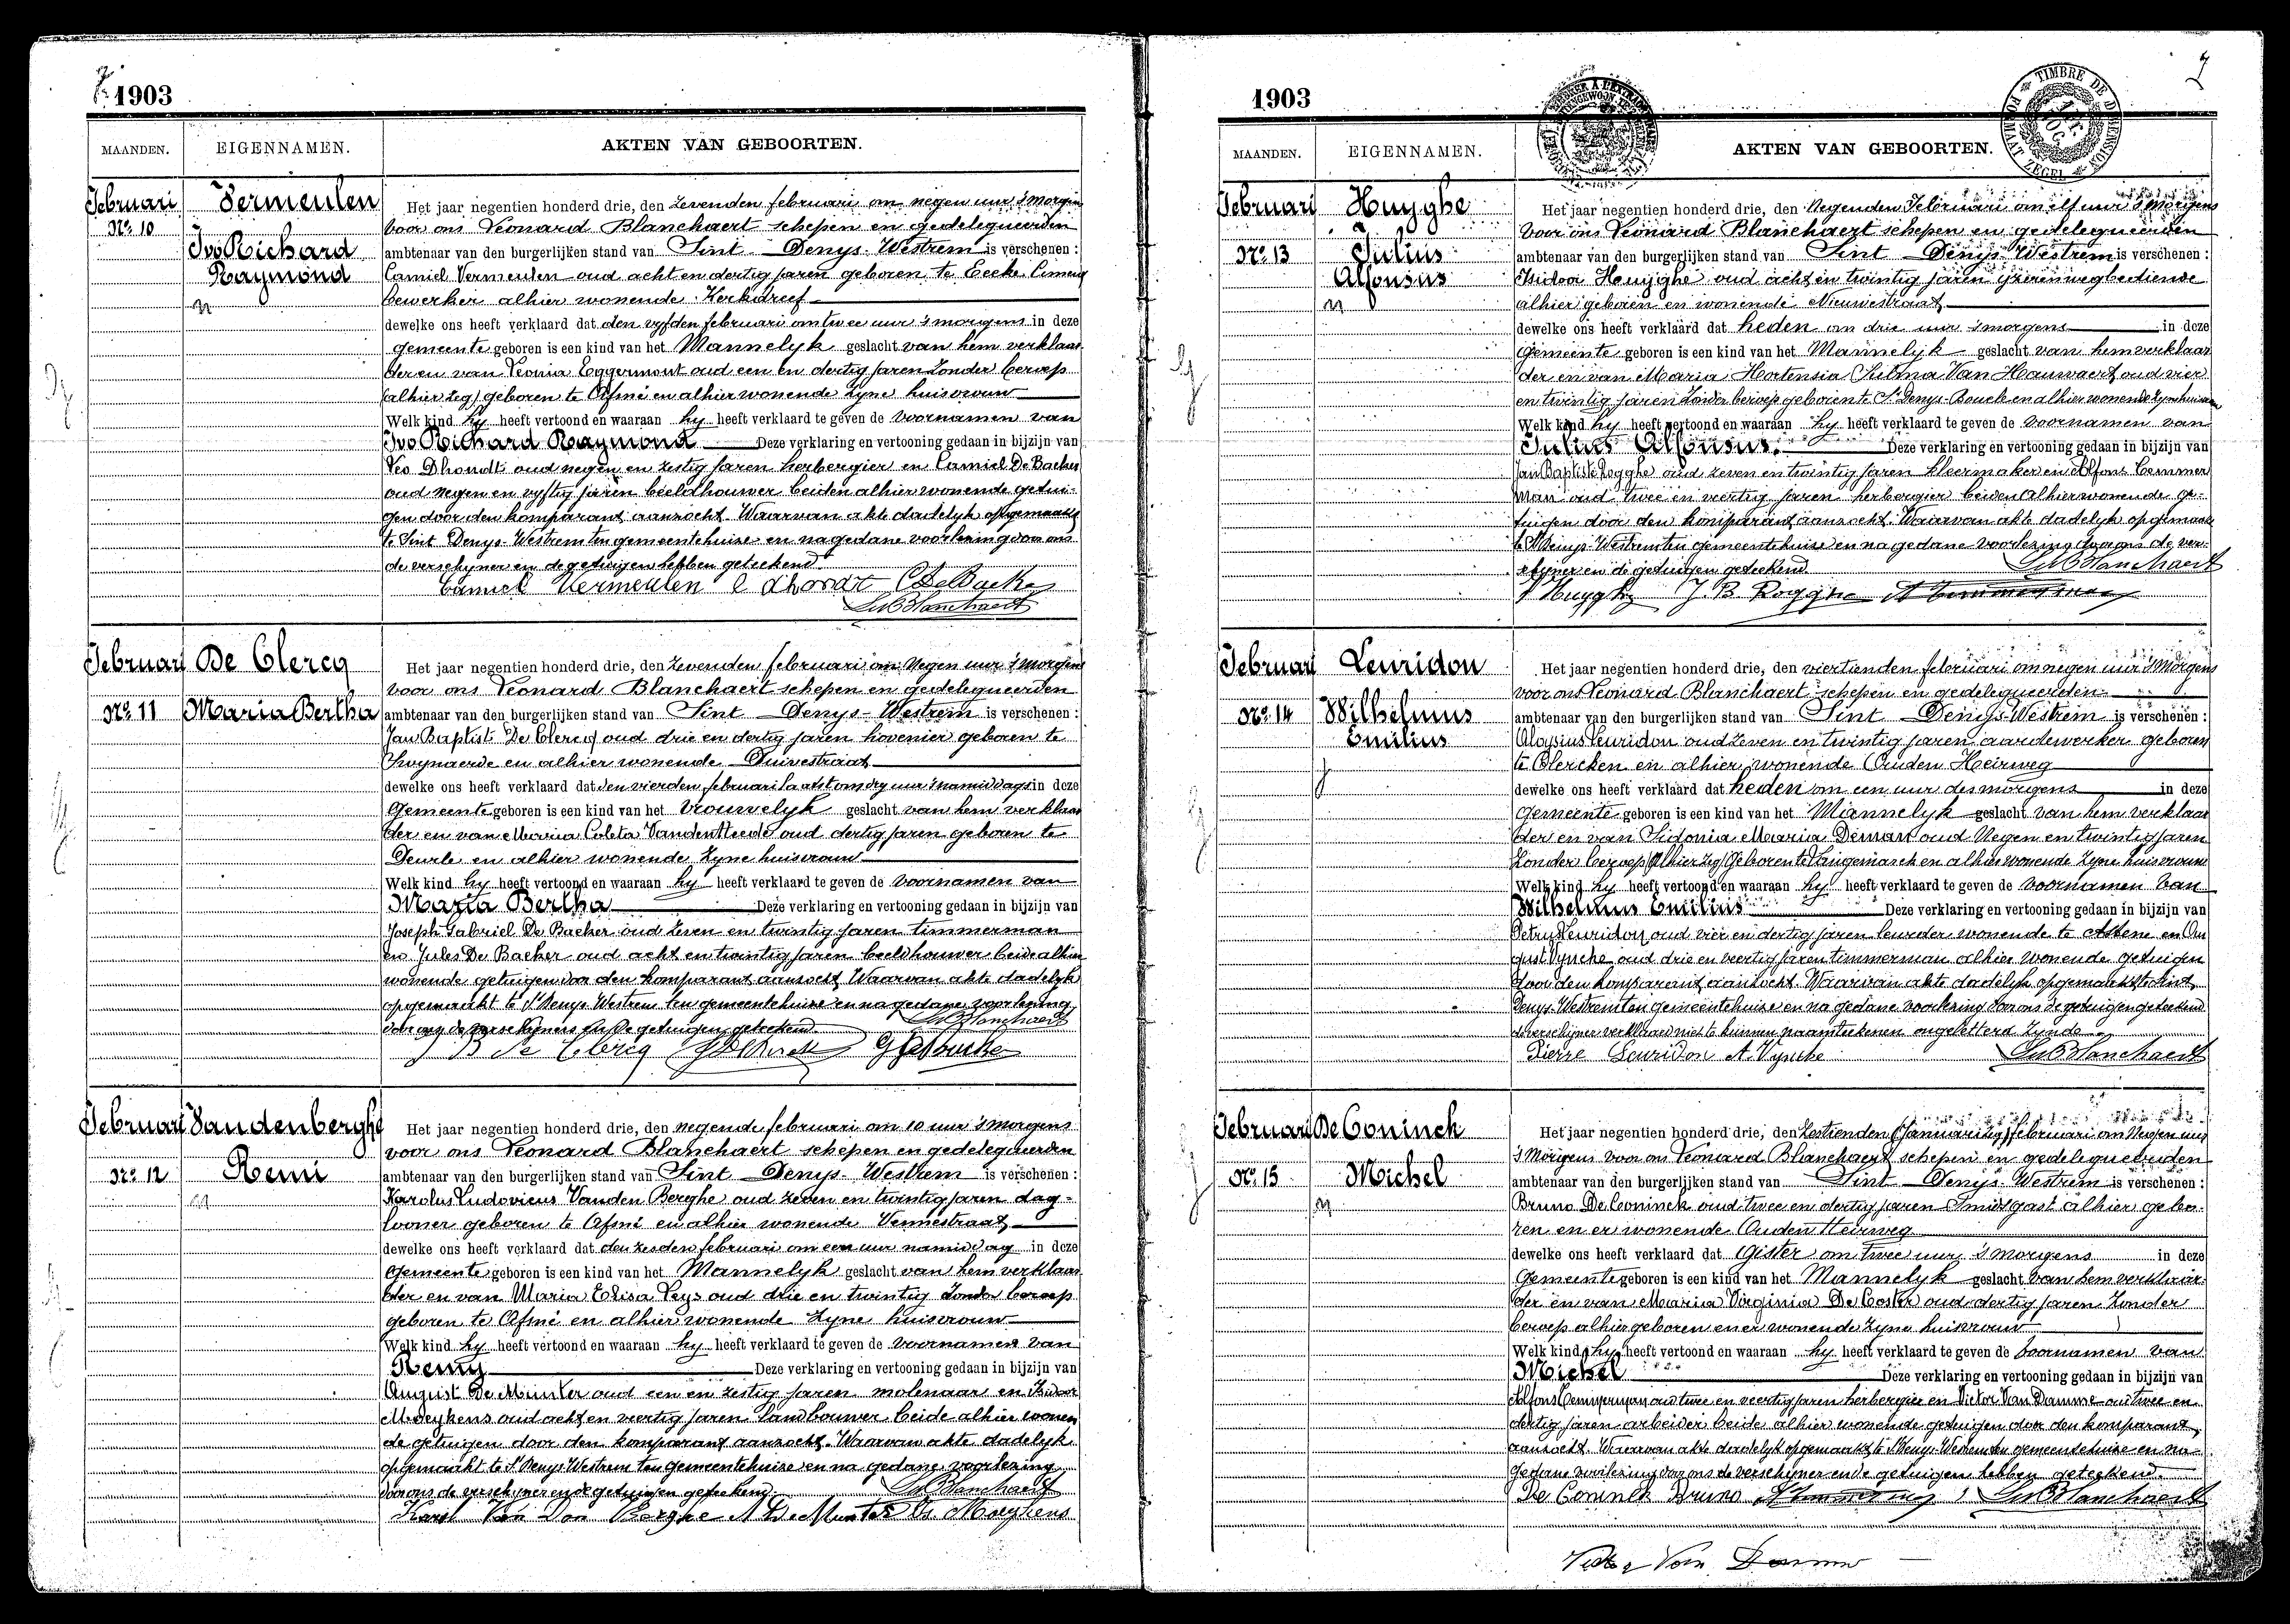 1903
MAANDEN. EIGENNAMEN. AKTEN VAN GEBOORTEN.
Februari
No. 10
Vermeulen
Ivo Richard
Raymond
Het jaar negentien honderd drie, den zevenden februari om negen uur 's morgens
voor ons Leonard Blanchaert schepen en gedelegueerden
ambtenaar van den burgerlijken stand van Sint Denys-Westrem is verschenen :
Camiel Vermeulen oud acht en dertig jaren geboren te Eecke
bewerker alhier wonende Kerkdreef
dewelke ons heeft verklaard dat den vyfden februari om twee uur 's morgens in deze
gemeente geboren is een kind van het Mannelyk geslacht van hem verklaar
der en van Leonia Eggermont oud een en dertig jaren zonder beroep
(alhier zeg) geboren te Afsné en alhier wonende zyne huisvrouw
Welk kind hy heeft vertoond en waaraan hy heeft verklaard te geven de voornamen van
Ivo Richard Raymond Deze verklaring en vertooning gedaan in bijzijn van
Leo Dhondt oud negen en zestig jaren herbergier en Camiel De Backer
oud negen en vyftig jaren beeldhouwer beiden alhier wonende getui-
gen door den komparant aanzocht. Waarvan akte dadelyk opgemaakt
te Sint Denys-Westrem ten gemeentehuize en na gedane voorlezing door ons
de verschyner en de getuigen hebben geteekend
Camiel Vermeulen L dhondt C De Backer
Ln Blanchaert
Februari
No. 11
De Clercq
Maria Bertha
Het jaar negentien honderd drie, den zevenden februari om negen uur 's morgens
voor ons Leonard Blanchaert schepen en gedelegueerden
ambtenaar van den burgerlijken stand van Sint Denys-Westrem is verschenen :
Jan Baptist De Clercq oud drie en dertig jaren hovenier geboren te
Zwynaerde en alhier wonende Duivestraat
dewelke ons heeft verklaard dat den vierden februari laatst om dry uur 's namiddags in deze
Gemeente geboren is een kind van het vrouwelyk geslacht van hem verklaar
der en van Maria Coleta Vanden Heede oud dertig jaren geboren te
Deurle en alhier wonende zyne huisvrouw
Welk kind hy heeft vertoond en waaraan hy heeft verklaard te geven de voornamen van
Maria Bertha Deze verklaring en vertooning gedaan in bijzijn van
Joseph Gabriel De Backer oud zeven en twintig jaren timmerman
en Jules De Backer oud acht en twintig jaren beeldhouwer beide alhier
wonende getuigen door den komparant aanzocht. Waarvan akte dadelyk
opgemaakt te St Denys Westrem ten gemeentehuize en na gedane voorlezing
door ons de verschyners en de getuigen geteekend.
J B De Clercq
Ln Blanchaert
Februari
No. 12
Vandenberghe
Remi
Het jaar negentien honderd drie, den negende februari om 10 uur 's morgens
voor ons Leonard Blanchaert schepen en gedelegueerden
ambtenaar van den burgerlijken stand van Sint Denys-Westrem is verschenen :
Karolus Ludovicus Vanden Berghe oud zeven en twintig jaren dag-
looner geboren te Afsné en alhier wonende Vennestraat
dewelke ons heeft verklaard dat den zesden februari om een uur namiddag in deze
Gemeente geboren is een kind van het Mannelyk geslacht van hem verklaar
der en van Maria Elisa Leys oud drie en twintig zonder beroep
geboren te Afsné en alhier wonende zyne huisvrouw
Welk kind hy heeft vertoond en waaraan hy heeft verklaard te geven de voornamen van
Remy Deze verklaring en vertooning gedaan in bijzijn van
August De Munter oud een en zestig jaren molenaar en Isidoor
Moeykens oud acht en veertig jaren landbouwer beide alhier wonen
de getuigen door den komparant aanzocht. Waarvan akte dadelyk
opgemaakt te St Denys Westrem ten gemeentehuize en na gedane voorlezing
door ons de verschyner en de getuigen geteekend.
Ln Blanchaert
Karel Van Den Berghe A De Munter Is. Moeykens
1903
7
TIMBRE DE DIMENSION
FORMAAT ZEGEL
MAANDEN. EIGENNAMEN. AKTEN VAN GEBOORTEN.
Februari
No. 13
Huyghe
Julius
Alfonsus
Het jaar negentien honderd drie, den Negenden Februari om elf uur 's morgens
voor ons Leonard Blanchaert schepen en gedelegueerden
ambtenaar van den burgerlijken stand van Sint Denys-Westrem is verschenen :
Isidoor Huyghe oud acht en twintig jaren yzerenwegbediende
alhier geboren en wonende Nieuwestraat
dewelke ons heeft verklaard dat heden om drie uur 's morgens in deze
gemeente geboren is een kind van het Mannelyk geslacht van hem verklaar
der en van Maria Hortensia Sulma Van Hauwaert oud vier
en twintig jaren zonder beroep geboren te St Denys-Boucle en alhier wonende zyne huisvrouw
Welk kind hy heeft vertoond en waaraan hy heeft verklaard te geven de voornamen van
Julius Alfonsus. Deze verklaring en vertooning gedaan in bijzijn van
Jan Baptist Rogghe oud zeven en twintig jaren kleermaker en Alfons Temmer
man oud twee en veertig jaren herbergier beiden alhier wonende ge-
tuigen door den komparant aanzocht. Waarvan akte dadelyk opgemaakt
te St Denys-Westrem ten gemeentehuize en na gedane voorlezing door ons de ver-
schyner en de getuigen geteekend.
Ln Blanchaert
I Huyghe J. B. Rogghe A Temmerman
Februari
No. 14
Leuridon
Wilhelmus
Emilius
Het jaar negentien honderd drie, den viertienden februari om negen uur 's morgens
voor ons Leonard Blanchaert schepen en gedelegueerden
ambtenaar van den burgerlijken stand van Sint Denys-Westrem is verschenen :
Aloysius Leuridon oud zeven en twintig jaren aardewerker geboren
te Clercken en alhier wonende Ouden Heirweg
dewelke ons heeft verklaard dat heden om een uur des morgens in deze
Gemeente geboren is een kind van het Mannelyk geslacht van hem verklaar
der en van Sidonia Maria Deman oud Negen en twintig jaren
zonder beroep (Alhier zeg) Geboren te Langemarck en alhier wonende zyne huisvrouw
Welk kind hy heeft vertoond en waaraan hy heeft verklaard te geven de voornamen van
Wilhelmus Emilius Deze verklaring en vertooning gedaan in bijzijn van
Petrus Leuridon oud vier en dertig jaren leurder wonende te Astene en Au
gust Vyncke oud drie en veertig jaren timmerman alhier wonende getuigen
door den komparant aanzocht. Waarvan akte dadelyk opgemaakt te Sint
Denys-Westrem ten gemeentehuize en na gedane voorlezing door ons de getuigen geteekend
de verschyner verklaard niet te kunnen naamteekenen ongeletterd zynde.
Pierre Leuridon A. Vyncke
Ln Blanchaert
Februari
No. 15
De Coninck
Michel
Het jaar negentien honderd drie, den zestienden (Januari zeg) februari om Negen uur
's Morgens voor ons Leonard Blanchaert schepen en gedelegueerden
ambtenaar van den burgerlijken stand van Sint Denys-Westrem is verschenen :
Bruno De Coninck oud twee en dertig jaren Smidsgast alhier gebo-
ren en er wonende Ouden Heirweg
dewelke ons heeft verklaard dat Gister om twee uur 's morgens in deze
Gemeente geboren is een kind van het Mannelyk geslacht van hem verklaar-
der en van Maria Virginia De Coster oud dertig jaren zonder
beroep alhier geboren en er wonende zyne huisvrouw
Welk kind hy heeft vertoond en waaraan hy heeft verklaard te geven de voornamen van
Michel Deze verklaring en vertooning gedaan in bijzijn van
Alfons Temmerman oud twee en veertig jaren herbergier en Victor Van Damme oud twee en
dertig jaren arbeider beide alhier wonende getuigen door den komparant
aanzocht. Waarvan akte dadelyk opgemaakt te St Denys-Westrem ten gemeentehuize en na
gedane voorlezing door ons de verschyner en de getuigen hebben geteekend.
De Coninck Bruno A Temmerman Ln Blanchaert
Victor Van Damme